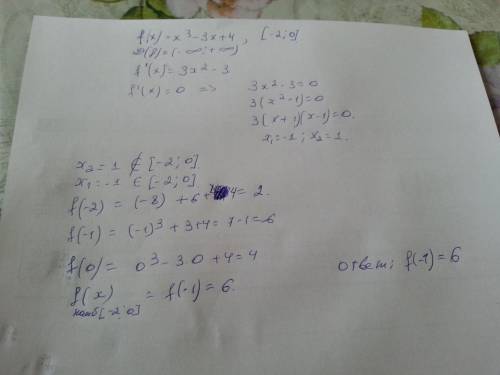 f(x)=x³-3x+4, [-2;0]
D(f)=(-∞;+∞)
f'(x)=3x²-3
f'(x)=0 =>
3x²-3=0
3(x²-1)=0
3(x+1)(x-1)=0.
x₁=-1; x₂=1.
x₂=1 ∉ [-2;0]
x₁=-1 ∈ [-2;0]
f(-2) = (-8) + 6 + 4 = 2.
f(-1) = (-1)³ + 3+4 = 7-1=6
f(0) = 0³-3·0 +4 = 4
f(x) = f(-1) = 6.
наиб[-2;0]
ответ: f(-1) = 6